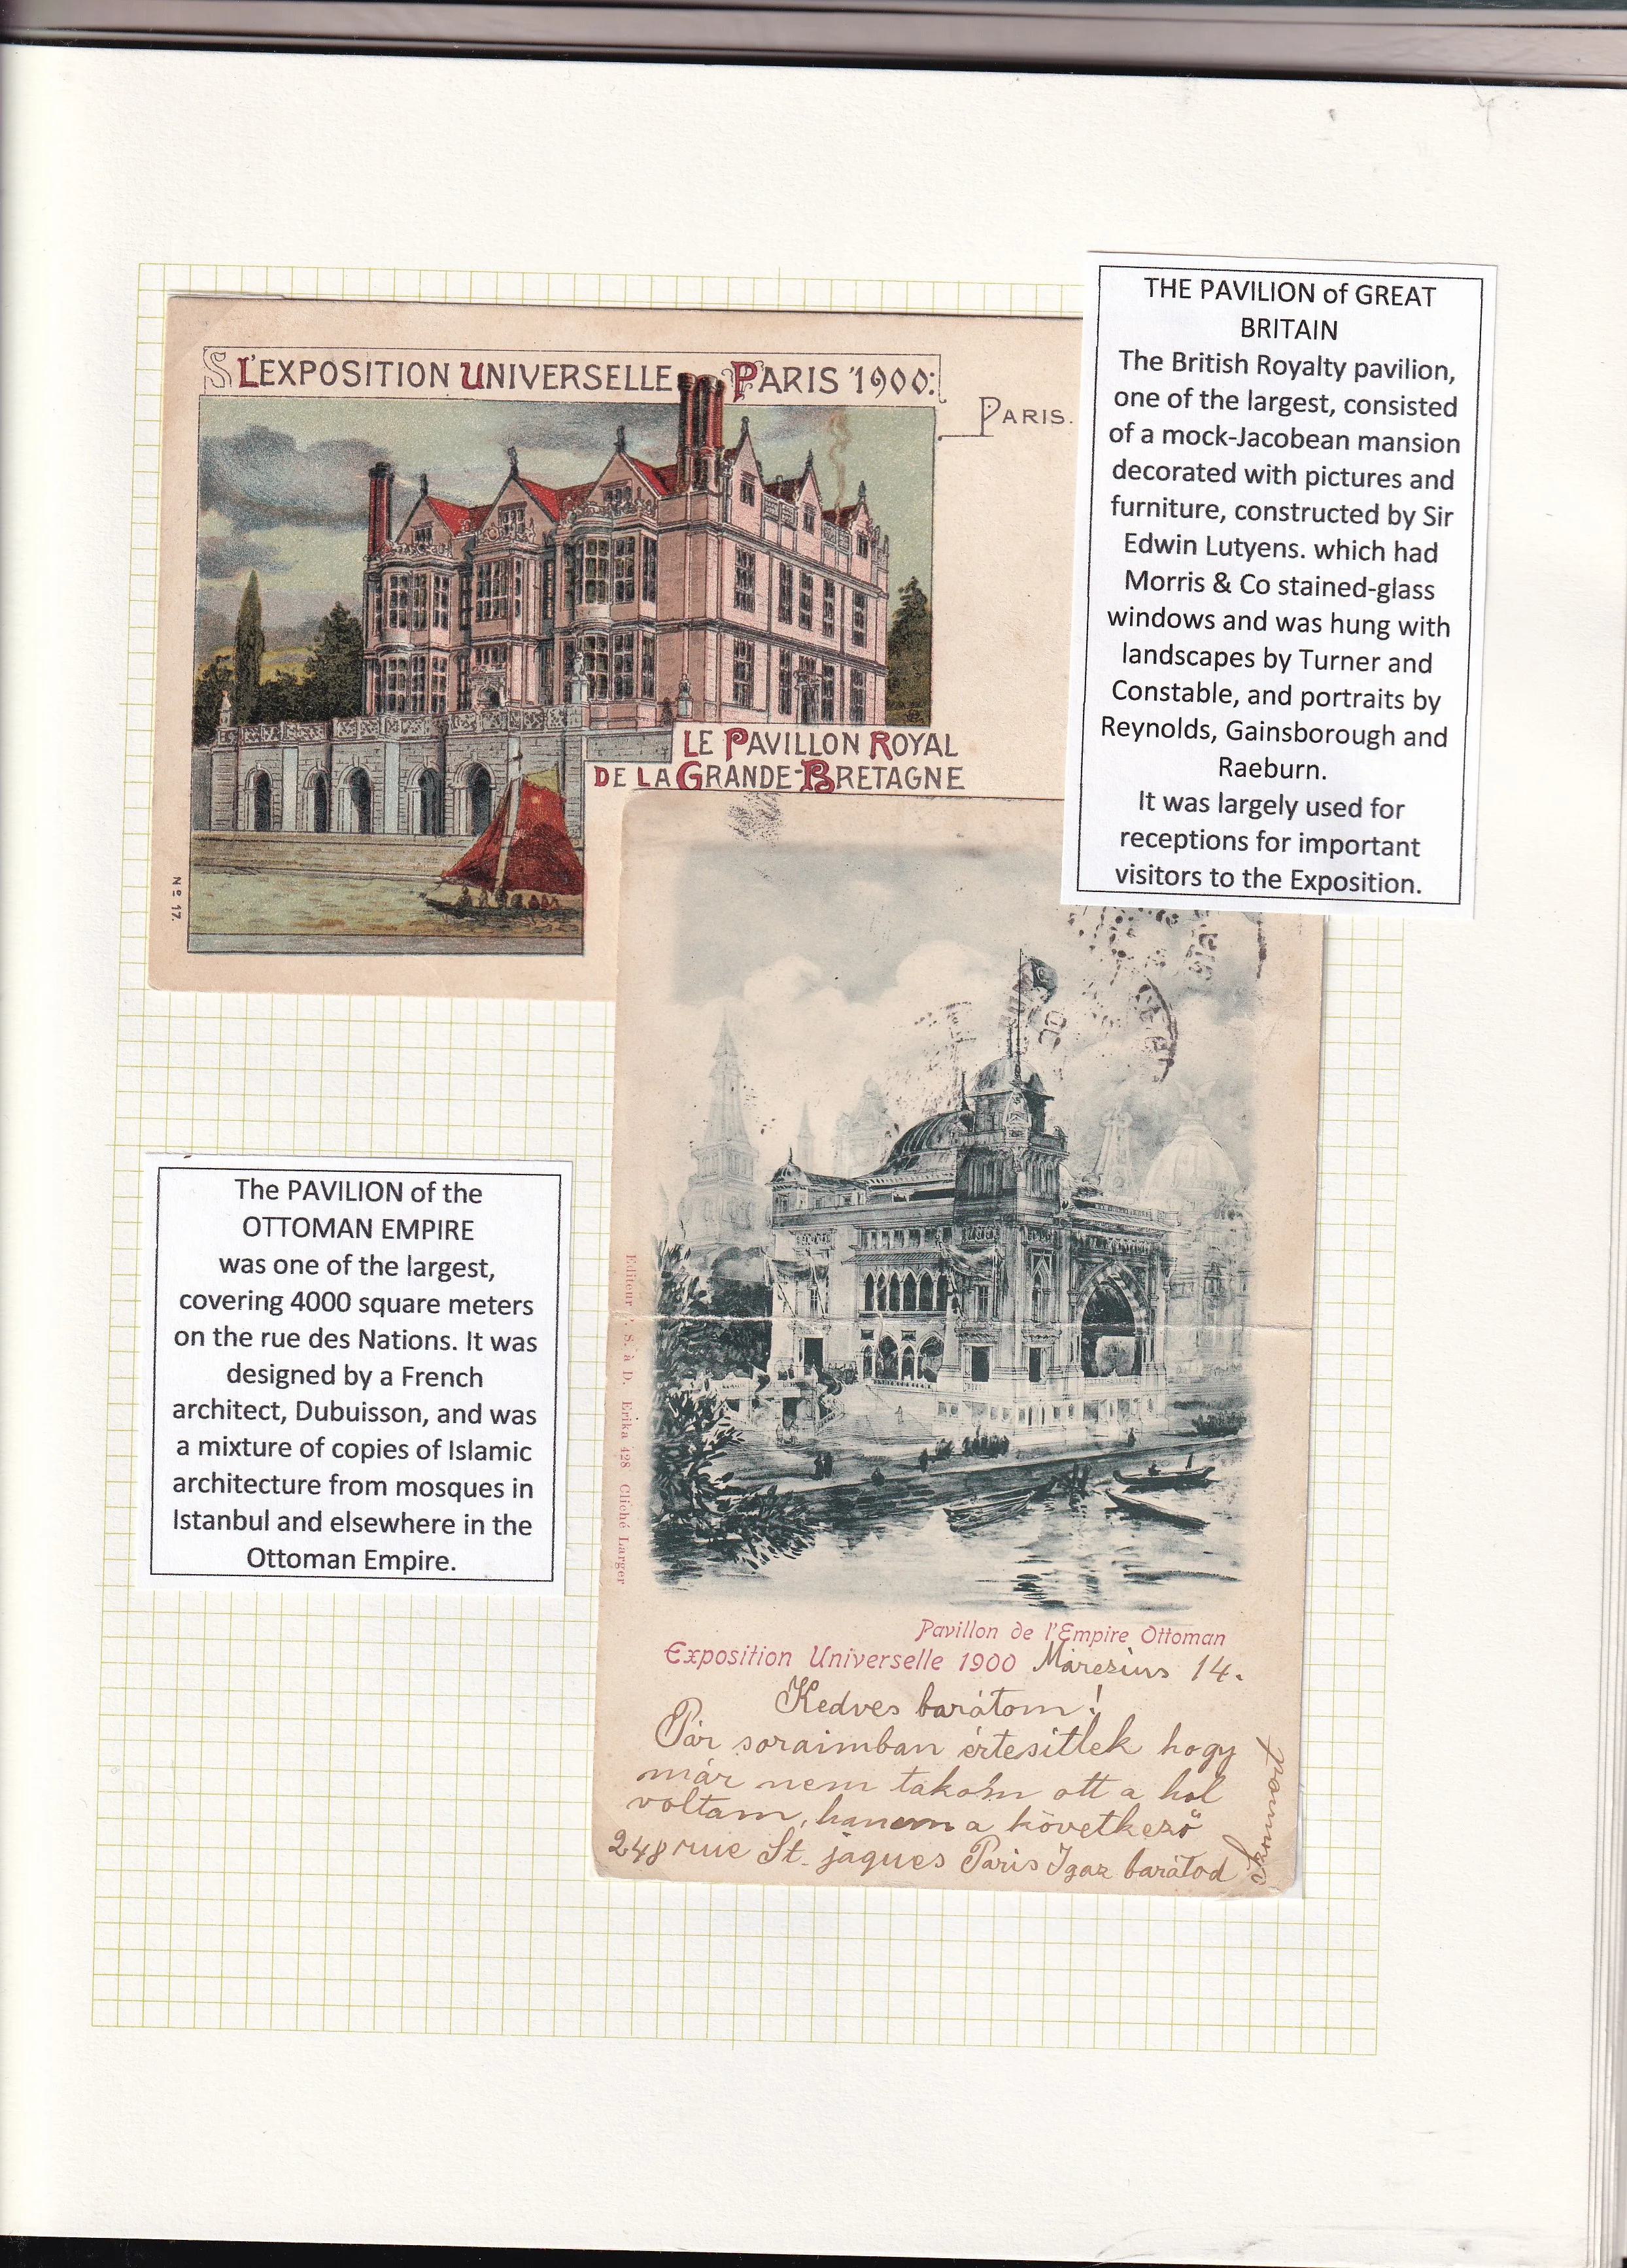 L'EXPOSITION UNIVERSELLE PARIS 1900:
PARIS.
LE PAVILLON ROYAL
DE LA GRANDE-BRETAGNE
Nº 17.
THE PAVILION of GREAT
BRITAIN
The British Royalty pavilion,
one of the largest, consisted
of a mock-Jacobean mansion
decorated with pictures and
furniture, constructed by Sir
Edwin Lutyens. which had
Morris & Co stained-glass
windows and was hung with
landscapes by Turner and
Constable, and portraits by
Reynolds, Gainsborough and
Raeburn.
It was largely used for
receptions for important
visitors to the Exposition.
The PAVILION of the
OTTOMAN EMPIRE
was one of the largest,
covering 4000 square meters
on the rue des Nations. It was
designed by a French
architect, Dubuisson, and was
a mixture of copies of Islamic
architecture from mosques in
Istanbul and elsewhere in the
Ottoman Empire.
Editeur S. à D. Erika 428 Cliché Larger
Pavillon de l'Empire Ottoman
Exposition Universelle 1900 Márczius 14.
Kedves barátom!
Pár soraimban értesitlek hogy
már nem lakom ott a hol
voltam, hanem a következö
248 rue St. jaques Paris Igaz barátod